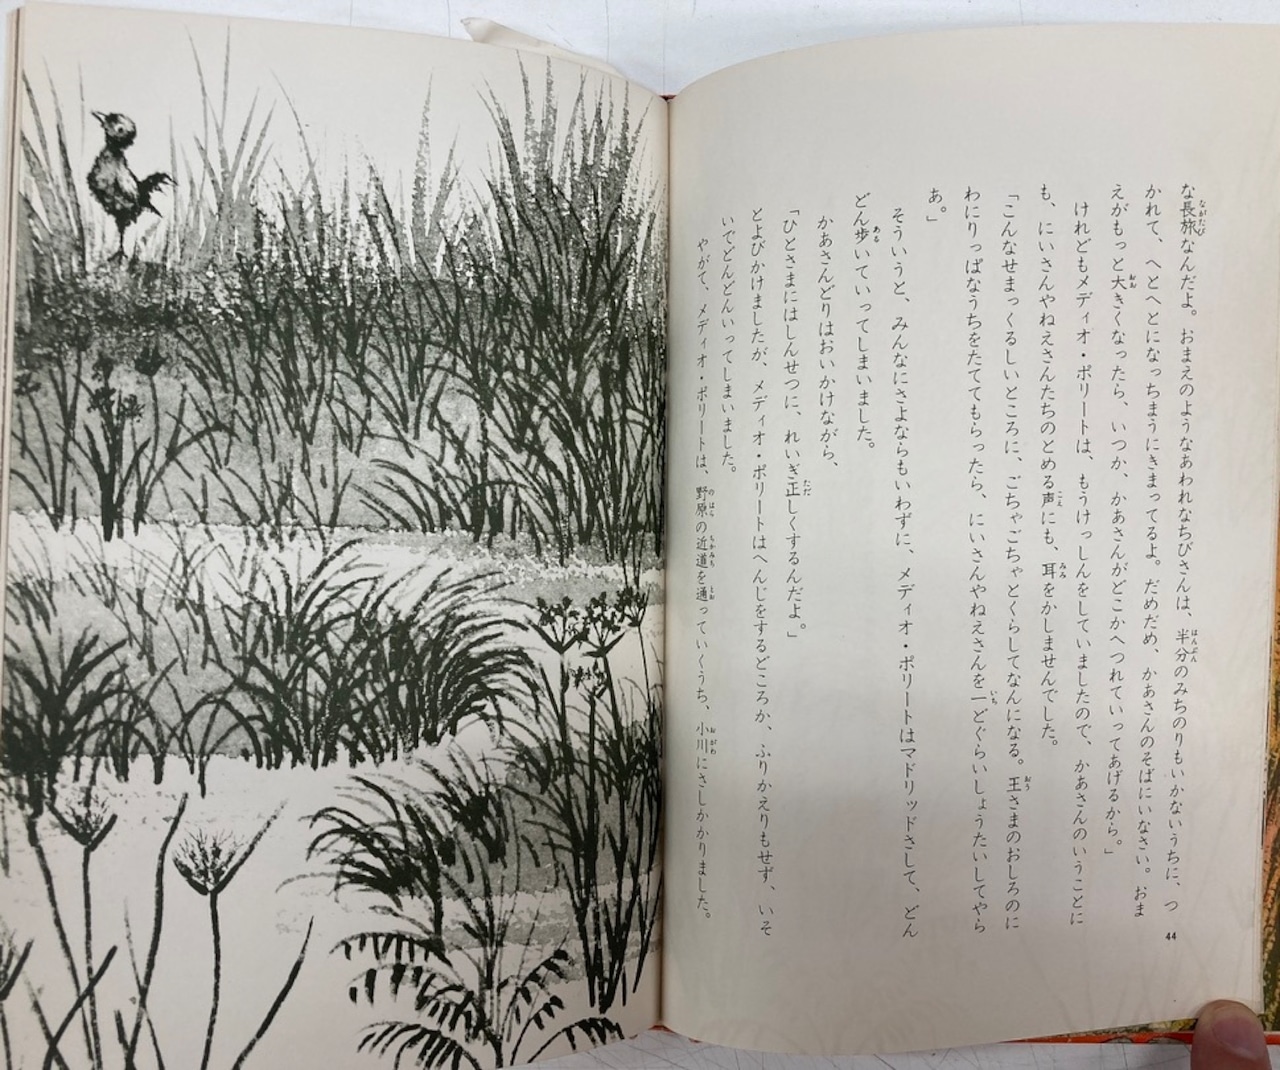 な長旅なんだよ。おまえのようなあわれなちびさんは、半分のみちのりもいかないうちに、つ
かれて、へとへとになっちまうにきまってるよ。だめだめ、かあさんのそばにいなさい。おま
えがもっと大きくなったら、いつか、かあさんがどこかへつれていってあげるから。」
けれどもメディオ・ポリートは、もうけっしんをしていましたので、かあさんのいうことに
も、にいさんやねえさんたちのとめる声にも、耳をかしませんでした。
「こんなせまっくるしいところに、ごちゃごちゃとくらしてなんになる。王さまのおしろのに
わにりっぱなうちをたててもらったら、にいさんやねえさんを一どぐらいしょうたいしてやら
あ。」
そういうと、みんなにさよならもいわずに、メディオ・ポリートはマドリッドさして、どん
どん歩いていってしまいました。
かあさんどりはおいかけながら、
「ひとさまにはしんせつに、れいぎ正しくするんだよ。」
とよびかけましたが、メディオ・ポリートはへんじをするどころか、ふりかえりもせず、いそ
いでどんどんいってしまいました。
やがて、メディオ・ポリートは、野原の近道を通っていくうち、小川にさしかかりました。
44